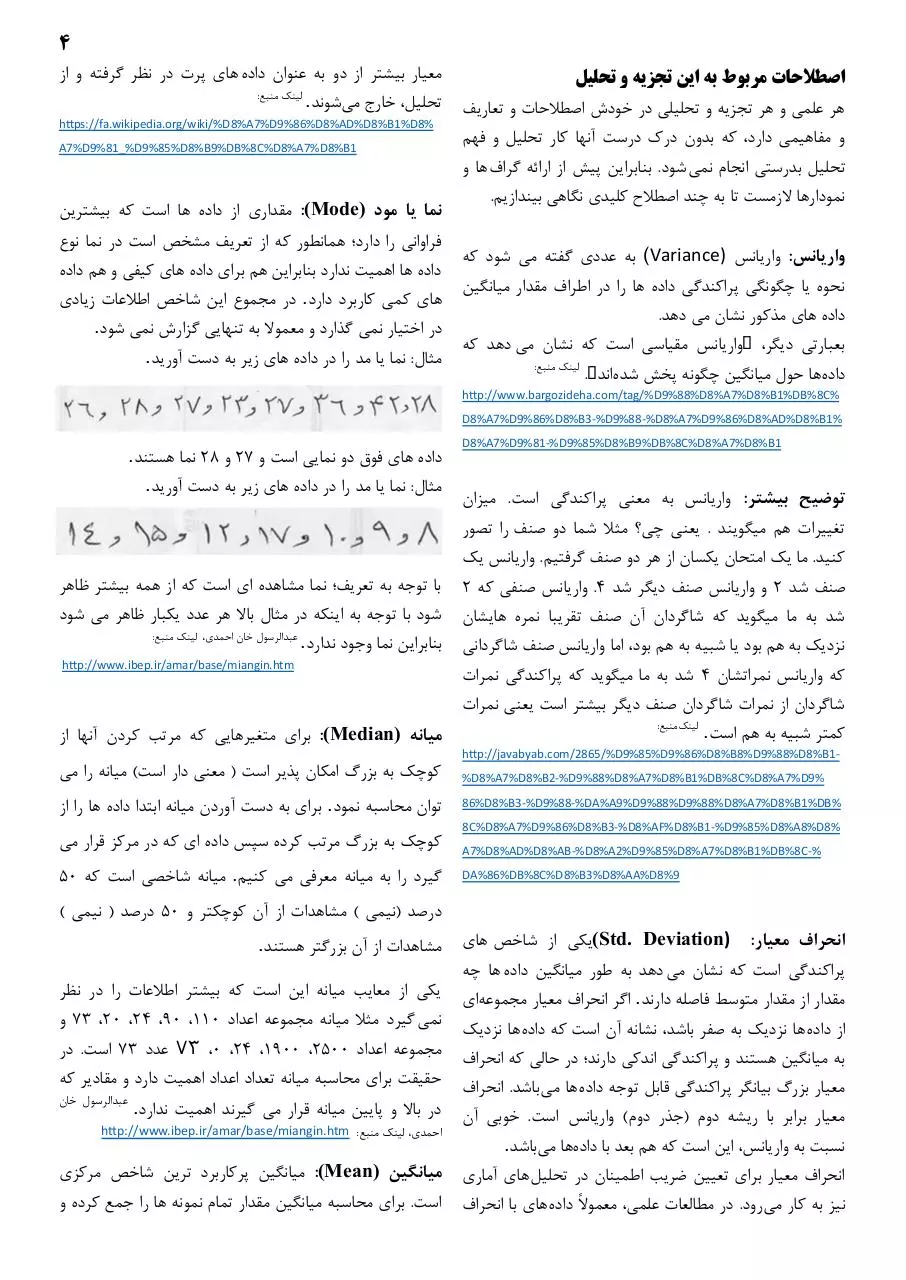 ۴
اصطلاحات مربوط به این تجزیه و تحلیل
هر علمی و هر تجزیه و تحلیلی در خودش اصطلاحات و تعاریف
و مفاهیمی دارد، که بدون درک درست آنها کار تحلیل و فهم
تحلیل بدرستی انجام نمی شود. بنابراین پیش از ارائه گراف ها و
نمودارها لازمست تا به چند اصطلاح کلیدی نگاهی بیندازیم.
واریانس: واریانس (Variance) به عددی گفته می شود که
نحوه یا چگونگی پراکندگی داده ها را در اطراف مقدار میانگین
داده های مذکور نشان می دهد.
بعبارتی دیگر، واریانس مقیاسی است که نشان می دهد که
داده‌ها حول میانگین چگونه پخش شده‌اند. لینک منبع:
http://www.bargozideha.com/tag/%D9%88%D8%A7%D8%B1%DB%8C%
D8%A7%D9%86%D8%B3-%D9%88-%D8%A7%D9%86%D8%AD%D8%B1%
D8%A7%D9%81-%D9%85%D8%B9%DB%8C%D8%A7%D8%B1
توضیح بیشتر: واریانس به معنی پراکندگی است. میزان
تغییرات هم میگویند . یعنی چی؟ مثلا شما دو صنف را تصور
کنید. ما یک امتحان یکسان از هر دو صنف گرفتیم. واریانس یک
صنف شد ۲ و واریانس صنف دیگر شد ۴. واریانس صنفی که ۲
شد به ما میگوید که شاگردان آن صنف تقریبا نمره هایشان
نزدیک به هم بود یا شبیه به هم بود، اما واریانس صنف شاگردانی
که واریانس نمراتشان ۴ شد به ما میگوید که پراکندگی نمرات
شاگردان از نمرات شاگردان صنف دیگر بیشتر است یعنی نمرات
کمتر شبیه به هم است. لینک منبع:
http://javabyab.com/2865/%D9%85%D9%86%D8%B8%D9%88%D8%B1-
%D8%A7%D8%B2-%D9%88%D8%A7%D8%B1%DB%8C%D8%A7%D9%
86%D8%B3-%D9%88-%DA%A9%D9%88%D9%88%D8%A7%D8%B1%DB%
8C%D8%A7%D9%86%D8%B3-%D8%AF%D8%B1-%D9%85%D8%A8%D8%
A7%D8%AD%D8%AB-%D8%A2%D9%85%D8%A7%D8%B1%DB%8C-%
DA%86%DB%8C%D8%B3%D8%AA%D8%9
انحراف معیار: (Std. Deviation) یکی از شاخص های
پراکندگی است که نشان می دهد به طور میانگین داده ها چه
مقدار از مقدار متوسط فاصله دارند. اگر انحراف معیار مجموعه‌ای
از داده‌ها نزدیک به صفر باشد، نشانه آن است که داده‌ها نزدیک
به میانگین هستند و پراکندگی اندکی دارند؛ در حالی که انحراف
معیار بزرگ بیانگر پراکندگی قابل توجه داده‌ها می‌باشد. انحراف
معیار برابر با ریشه دوم (جذر دوم) واریانس است. خوبی آن
نسبت به واریانس، این است که هم بعد با داده‌ها می‌باشد.
انحراف معیار برای تعیین ضریب اطمینان در تحلیل‌های آماری
نیز به کار می‌رود. در مطالعات علمی، معمولاً داده‌های با انحراف
معیار بیشتر از دو به عنوان داده های پرت در نظر گرفته و از
تحلیل، خارج می‌شوند. لینک منبع:
https://fa.wikipedia.org/wiki/%D8%A7%D9%86%D8%AD%D8%B1%D8%
A7%D9%81_%D9%85%D8%B9%DB%8C%D8%A7%D8%B1
نما یا مود (Mode): مقداری از داده ها است که بیشترین
فراوانی را دارد؛ همانطور که از تعریف مشخص است در نما نوع
داده ها اهمیت ندارد بنابراین هم برای داده های کیفی و هم داده
های کمی کاربرد دارد. در مجموع این شاخص اطلاعات زیادی
در اختیار نمی گذارد و معمولا به تنهایی گزارش نمی شود.
مثال: نما یا مد را در داده های زیر به دست آورید.
۲۸و۴۲و۳۶و۲۷و۲۳و۲۷و۲۸و۲۶
داده های فوق دو نمایی است و ۲۷ و ۲۸ نما هستند.
مثال: نما یا مد را در داده های زیر به دست آورید.
۸و۹و۱۰و۱۷و۱۲و۱۵و۱۴
با توجه به تعریف؛ نما مشاهده ای است که از همه بیشتر ظاهر
شود با توجه به اینکه در مثال بالا هر عدد یکبار ظاهر می شود
بنابراین نما وجود ندارد. عبدالرسول خان احمدی، لینک منبع:
http://www.ibep.ir/amar/base/miangin.htm
میانه (Median): برای متغیرهایی که مرتب کردن آنها از
کوچک به بزرگ امکان پذیر است ( معنی دار است) میانه را می
توان محاسبه نمود. برای به دست آوردن میانه ابتدا داده ها را از
کوچک به بزرگ مرتب کرده سپس داده ای که در مرکز قرار می
گیرد را به میانه معرفی می کنیم. میانه شاخصی است که ۵۰
درصد (نیمی ) مشاهدات از آن کوچکتر و ۵۰ درصد ( نیمی )
مشاهدات از آن بزرگتر هستند.
یکی از معایب میانه این است که بیشتر اطلاعات را در نظر
نمی گیرد مثلا میانه مجموعه اعداد ۱۱۰، ۹۰، ۲۴، ۲۰، ۷۳ و
مجموعه اعداد ۲۵۰۰، ۱۹۰۰، ۲۴، ۰، ۷۳ عدد ۷۳ است. در
حقیقت برای محاسبه میانه تعداد اعداد اهمیت دارد و مقادیر که
در بالا و پایین میانه قرار می گیرند اهمیت ندارد. عبدالرسول خان
احمدی، لینک منبع: http://www.ibep.ir/amar/base/miangin.htm
میانگین (Mean): میانگین پرکاربرد ترین شاخص مرکزی
است. برای محاسبه میانگین مقدار تمام نمونه ها را جمع کرده و